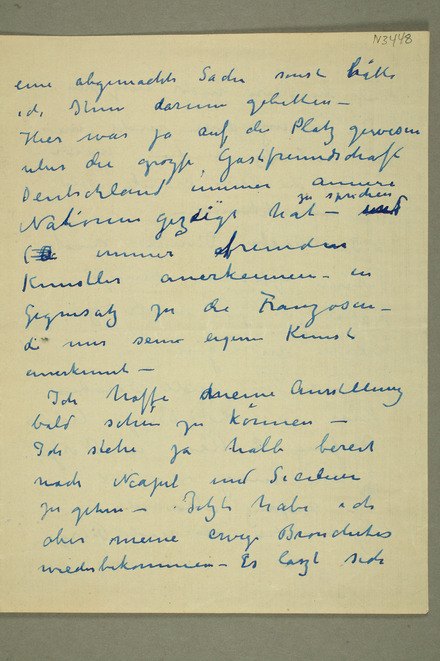 N3448
eine abgemachte Sache sonst hätte
ich Ihnen darum gebetten –
Hier war ja auf der Platz gewesen
über die große Gastfreundschaft
Deutschland immer annere
zu sprechen
Nationen gezeigt hat –
( immer fremden
Künstler anerkennen – in
Gegensatz zu die Franzosen –
die nur seine eigene Kunst
anerkennt –
Ich hoffe meine Ausstellung
bald sehen zu können –
Ich stehe ja halb bereit
nach Neapel und Sicilien
zu gehen – Jetzt habe ich
aber meine ewige Bronchites
wiederbekommen – Es laszt sich